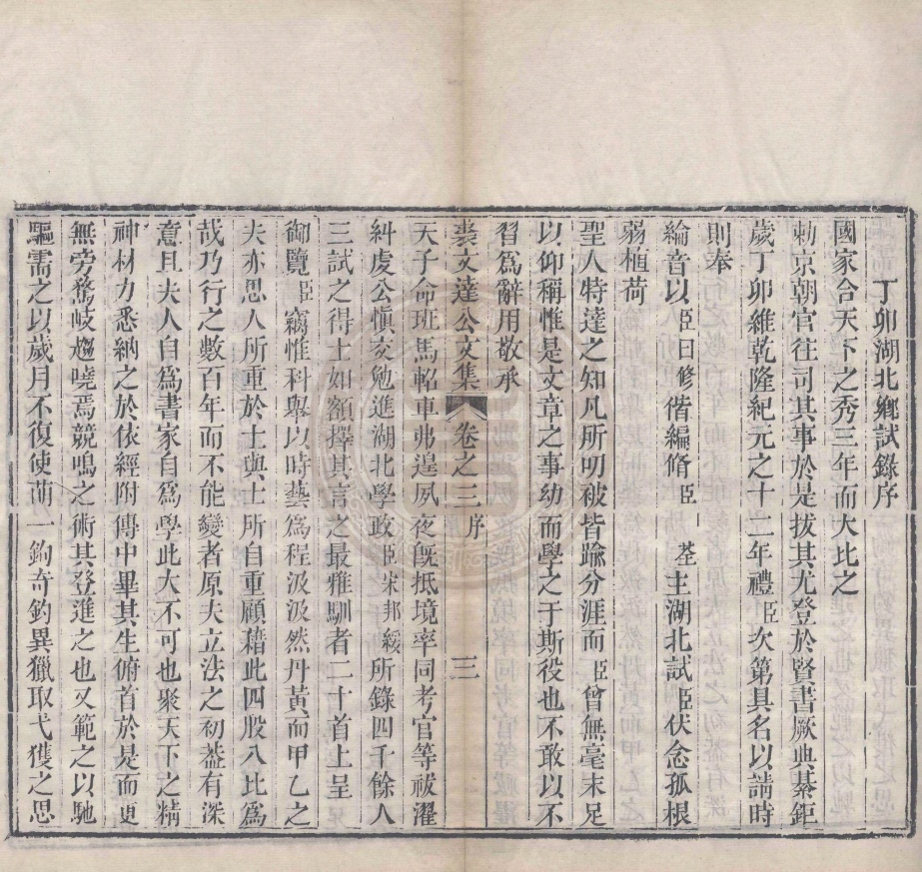 丁卯湖北鄉試錄序
國家合天下之秀三年而大比之
勅京朝官往司其事於是拔其尤登於賢書厥典綦鉅
歲丁卯維乾隆紀元之十二年禮臣次第具名以請時
則奉
綸音以臣曰修偕編脩臣荃主湖北試臣伏念孤根
弱植荷
聖人特達之知凡所叨被皆踰分涯而臣曾無毫末足
以仰稱惟是文章之事幼而學之于斯役也不敢以不
習爲辭用敬承
裘文達公文集 卷之三序 三
天子命班馬軺車弗遑夙夜旣抵境率同考官等祓濯
糾虔公愼交勉進湖北學政臣宋邦綏所錄四千餘人
三試之得士如額擇其言之最雅馴者二十首上呈
御覽臣竊惟科舉以時藝爲程汲汲然丹黃而甲乙之
夫亦思人所重於士與士所自重顧藉此四股八比爲
哉乃行之數百年而不能變者原夫立法之初葢有深
意且夫人自爲書家自爲學此大不可也聚天下之精
神材力悉納之於依經附傳中畢其生俯首於是而更
無旁騖岐趨嘵焉競鳴之術其登進之也又範之以馳
驅需之以歲月不復使萌一鉤奇釣異獵取弋獲之思